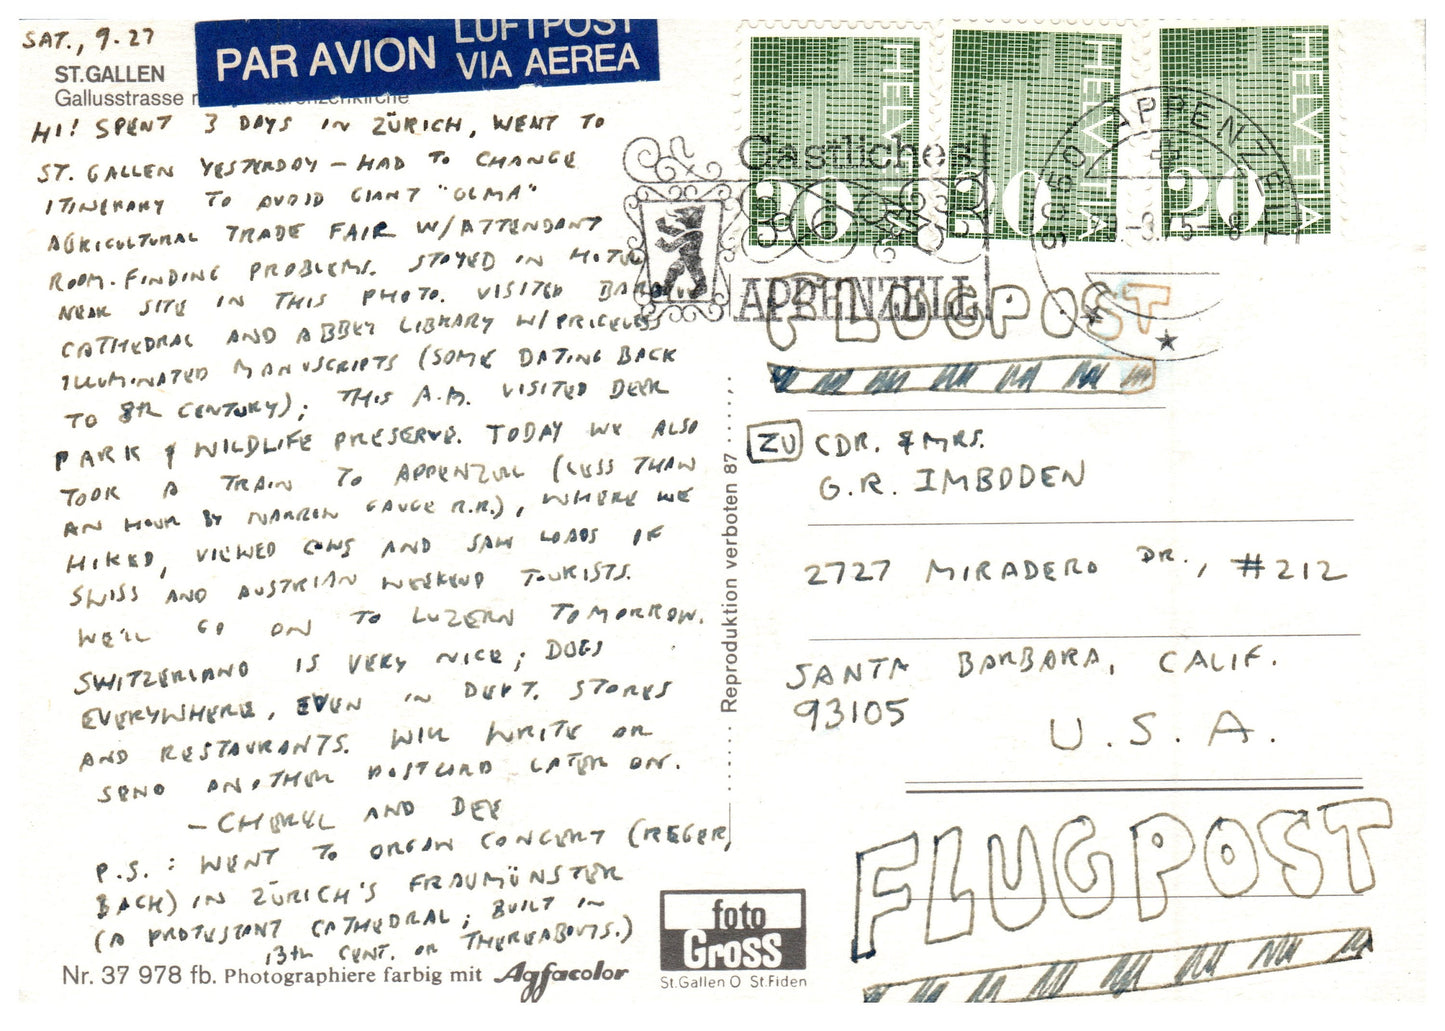 SAT., 9-27
PAR AVION
LUFTPOST
VIA AEREA
ST.GALLEN
Gallusstrasse
HI! SPENT 3 DAYS IN ZÜRICH, WENT TO
ST. GALLEN YESTERDAY – HAD TO CHANGE
ITINERARY TO AVOID GIANT "OLMA"
AGRICULTURAL TRADE FAIR W/ATTENDANT
ROOM-FINDING PROBLEMS. STAYED IN HOTEL
NEAR SITE IN THIS PHOTO. VISITED BAROQUE
CATHEDRAL AND ABBEY LIBRARY W/PRICELESS
ILLUMINATED MANUSCRIPTS (SOME DATING BACK
TO 8TH CENTURY); THIS A.M. VISITED DEER
PARK & WILDLIFE PRESERVE. TODAY WE ALSO
TOOK A TRAIN TO APPENZELL (LESS THAN
AN HOUR BY NARROW GAUGE R.R.), WHERE WE
HIKED, VIEWED COWS AND SAW LOADS OF
SWISS AND AUSTRIAN WEEKEND TOURISTS.
WE'LL GO ON TO LUZERN TOMORROW.
SWITZERLAND IS VERY NICE; DOGS
EVERYWHERE, EVEN IN DEPT. STORES
AND RESTAURANTS. WILL WRITE OR
SEND ANOTHER POSTCARD LATER ON.
– CHERYL AND DEE
P.S.: WENT TO ORGAN CONCERT (REGER,
BACH) IN ZÜRICH'S FRAUMÜNSTER
(A PROTESTANT CATHEDRAL; BUILT IN
13TH CENT. OR THEREABOUTS.)
Nr. 37 978 fb. Photographiere farbig mit Agfacolor
Reproduktion verboten 87
foto
Gross
St.Gallen O St.Fiden
HELVETIA
20
HELVETIA
20
HELVETIA
20
Gastliches
APPENZELL
9050 APPENZELL
FLUGPOST
ZU CDR. & MRS.
G.R. IMBODEN
2727 MIRADERO DR., #212
SANTA BARBARA, CALIF.
93105
U.S.A.
FLUGPOST